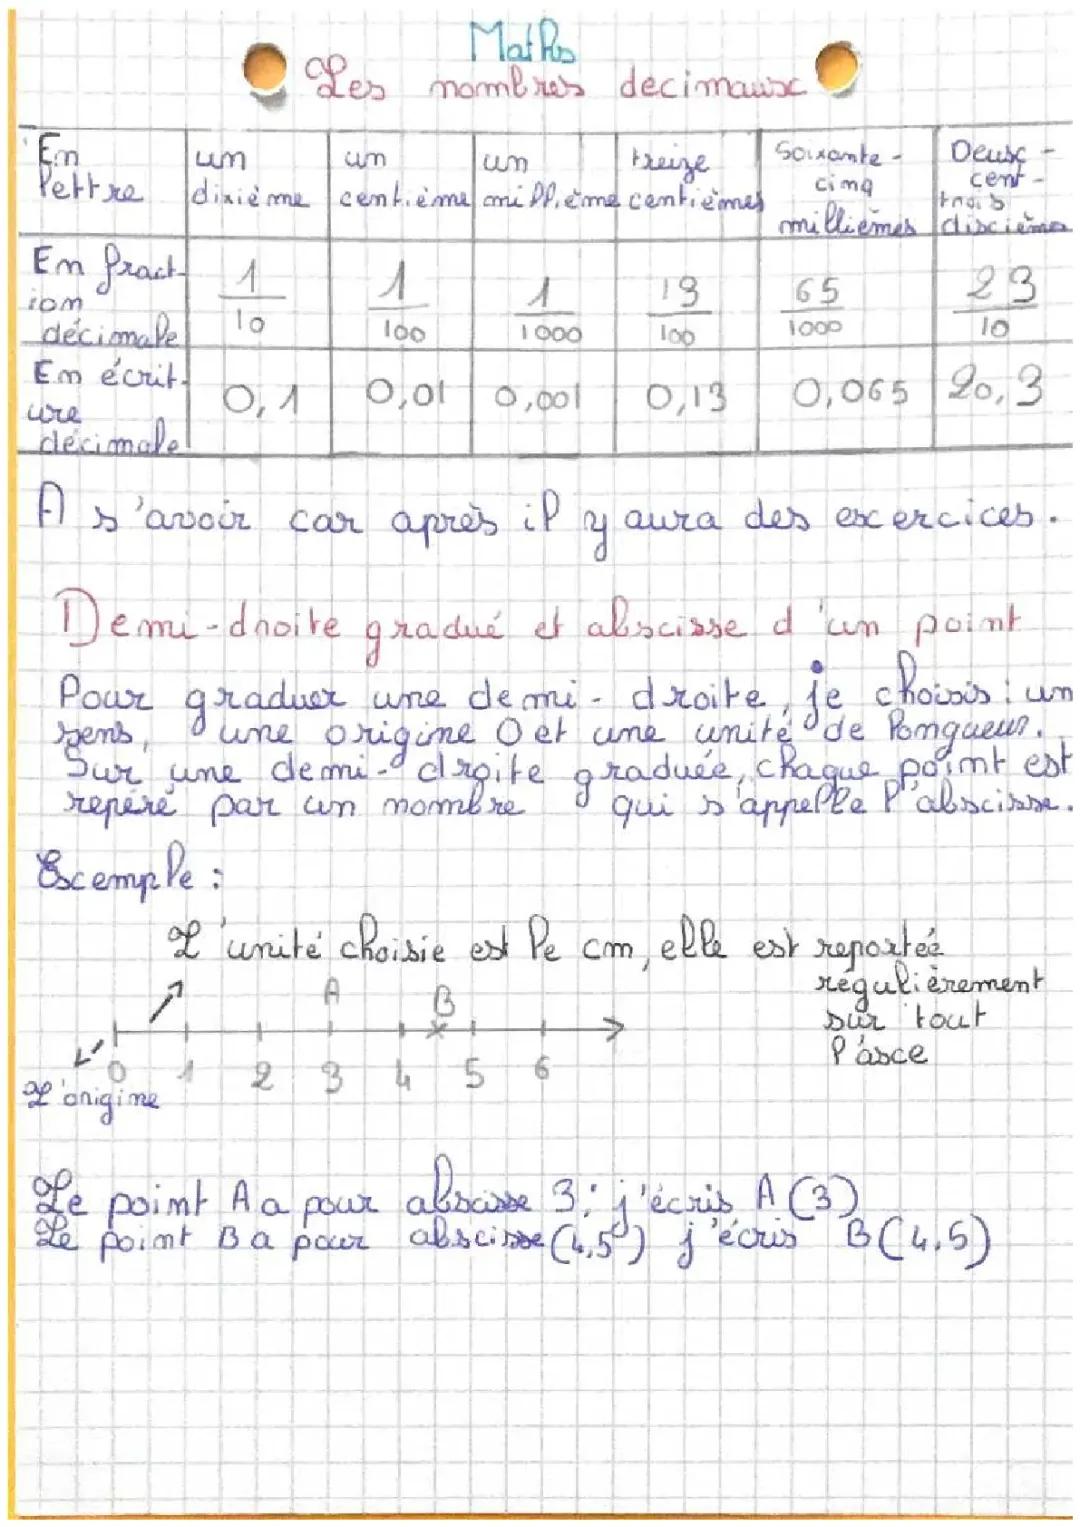 Maths
Les nombres decimaux
En lettre | un dixième | un centième | un millième | treize centièmes | Soixante-cinq millièmes | Deux-cent-trois dixièmes
En fraction décimale | 1/10 | 1/100 | 1/1000 | 13/100 | 65/1000 | 23/10
En écriture décimale | 0,1 | 0,01 | 0,001 | 0,13 | 0,065 | 20,3
A s'avoir car après il y aura des excercices.
Demi-droite gradué et abscisse d'un point
Pour graduer une demi-droite, je choisis : un
sens, une origine O et une unité de longueur.
Sur une demi-droite graduée, chaque point est
repéré par un nombre qui s'appelle l'abscisse.
Exemple :
L'unité choisie est le cm, elle est reportée
régulièrement
sur tout
l'axe
A B
0 1 2 3 4 5 6
L'origine
Le point A a pour abscisse 3 : j'écris A (3)
Le point B a pour abscisse (4,5) j'écris B (4,5)